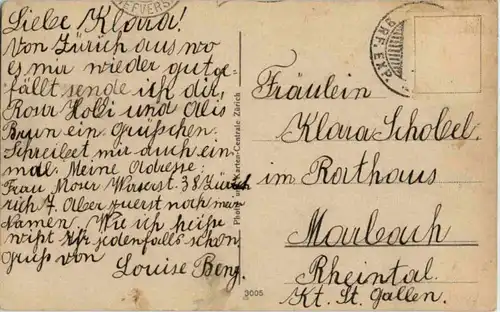 Liebe Klara!
Von Zürich aus wo
es mir wieder gutge-
fällt sende ich dir,
Rosa Hobi und Alis
Brun ein grüßchen.
Schreibet mir auch ein
mal. Meine Adresse:
Frau Moser 38 Zürich
rich 7. Aber zuerst noch mein
Namen. Wie ich heiße
wißt Ihr jedenfalls schon
gruß von
Louise Benz.
Photo und Karten-Centrale Zürich
3005
BRF. EXP.
Fräulein
Klara Schobel.
im Rathaus
Marbach
Rheintal.
Kt. St. Gallen.